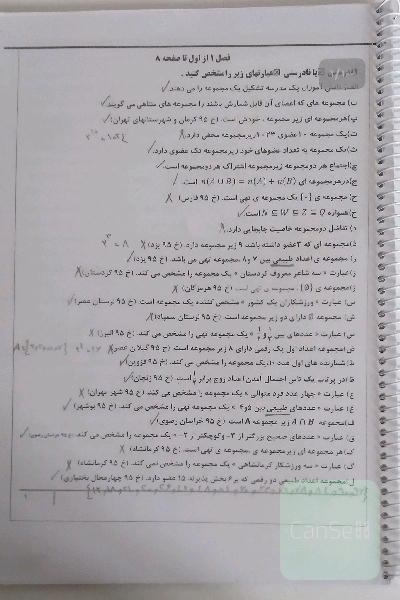 فصل ۱ از اول تا صفحه ۸
درستی یا نادرستی عبارتهای زیر را مشخص کنید.
دانش آموزان یک مدرسه تشکیل یک مجموعه را می دهند.
ب) مجموعه های که اعضای آن قابل شمارش باشند را مجموعه های متناهی می گویند.
پ) هر مجموعه ای زیر مجموعه ی خودش است. (خ ۹۵ کرمان و شهرستانهای تهران)
ت) یک مجموعه ۱۰ عضوی ۱۰۲۳ زیرمجموعه محض دارد.
ث) یک مجموعه به تعداد عضوهای خود زیرمجموعه تک عضوی دارد.
ج) اجتماع هر دو مجموعه زیرمجموعه اشتراک هر دو مجموعه است.
چ) در هر مجموعه ای n(A ∪ B) = n(A) + n(B) است.
ح) مجموعه ی {۰} یک مجموعه ی تهی است. (خ ۹۵ فارس)
خ) همواره N ⊆ W ⊆ Z ⊆ Q است.
د) تفاضل دو مجموعه خاصیت جابجایی دارد.
ذ) مجموعه ای که ۳ عضو داشته باشد ۹ زیر مجموعه دارد. (خ ۹۵ یزد) ۲^۳ = ۸
ر) مجموعه ی اعداد طبیعی بین ۷ و ۸ مجموعه تهی می باشد. (خ ۹۵ یزد)
ز) عبارت « سه شاعر معروف کردستان » یک مجموعه را مشخص می کند. (خ ۹۵ کردستان)
ژ) مجموعه ی {∅} ، مجموعه ی تهی است (خ ۹۵ هرمزگان)
س) عبارت « ورزشکاران یک کشور » مشخص کننده یک مجموعه است (خ ۹۵ لرستان عصر)
ش) مجموعه ∅ دارای دو زیر مجموعه است. (خ ۹۵ لرستان
ص) عبارت « عددهای بین » یک مجموعه تهی را مشخص می کند. (خ ۹۵ البرز)
ض) مجموعه اعداد اول یک رقمی دارای ۸ زیر مجموعه است (خ ۹۵ گیلان عصر)
ط) شمارنده های اول عدد ۱۰ یک مجموعه را مشخص می کند. (خ ۹۵ قزوین)
ظ) در پرتاب یک تاس احتمال آمدن اعداد زوج برابر است. (خ ۹۵ زنجان)
ع) عبارت « چهار عدد فرد متوالی » یک مجموعه را مشخص می کند (خ ۹۵ شهر تهران)
غ) عبارت « عددهای طبیعی بین ۵ و ۶ » یک مجموعه تهی را مشخص می کند. (خ ۹۵ بوشهر)
ف) مجموعه A ∩ B زیر مجموعه A است (خ ۹۵ خراسان رضوی)
ق) عبارت « عددهای صحیح بزرگتر از ۳- و کوچکتر از ۲- » یک مجموعه را مشخص می کند.
ک) هر مجموعه ای زیرمجموعه ی مجموعه ی تهی است. (خ ۹۵ کرمانشاه)
گ) عبارت « سه ورزشکار کرمانشاهی » یک مجموعه را مشخص نمی کند. (خ ۹۵ کرمانشاه)
ل) مجموعه اعداد طبیعی دو رقمی که بر ۶ بخش پذیرند ۱۵ عضو دارد. (خ ۹۵ چهارمحال بختیاری)